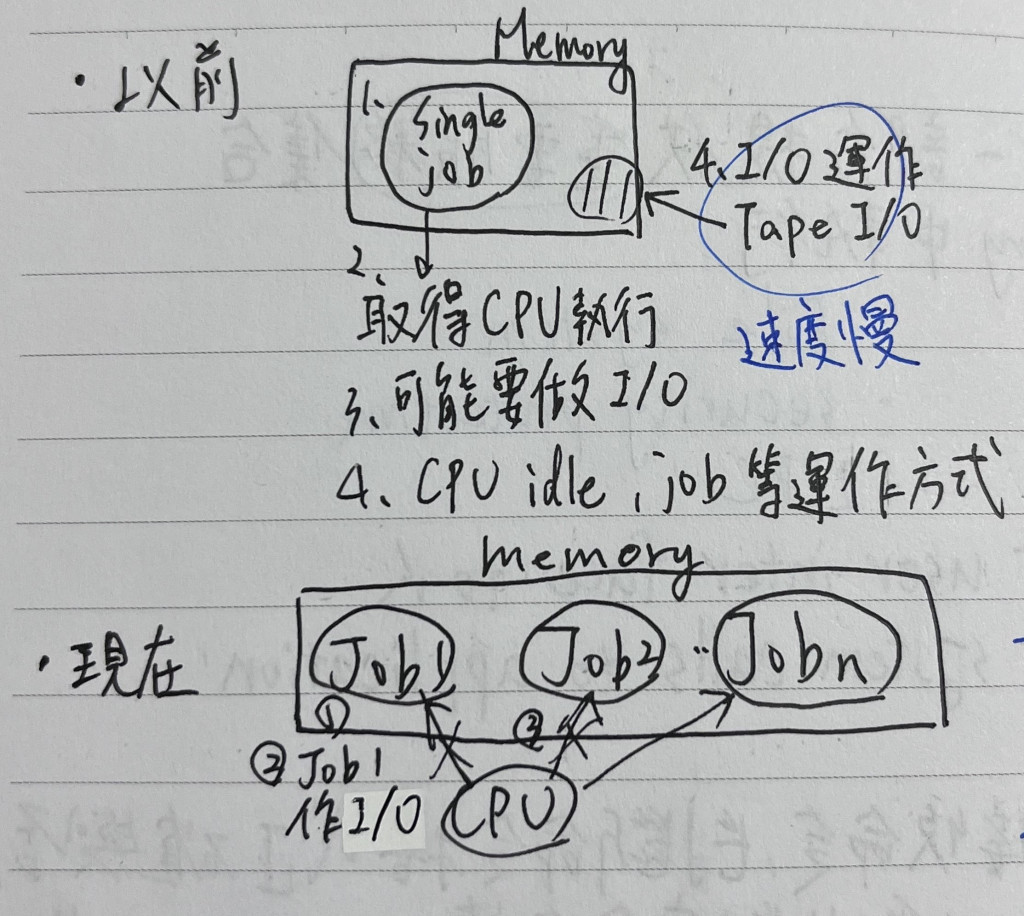 Memory
· 以前
1、 single
job
4、I/O 運作
Tape I/O
速度慢
2、
取得CPU執行
3、可能要做 I/O
4、CPU idle，job 等運作方式
memory
· 現在
Job1 Job2 ‥ Jobn
① ③
② Job1
作I/O CPU